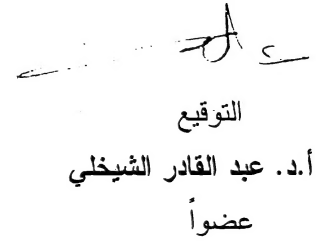 التوقيع
أ.د. عبد القادر الشيخلي
عضواً